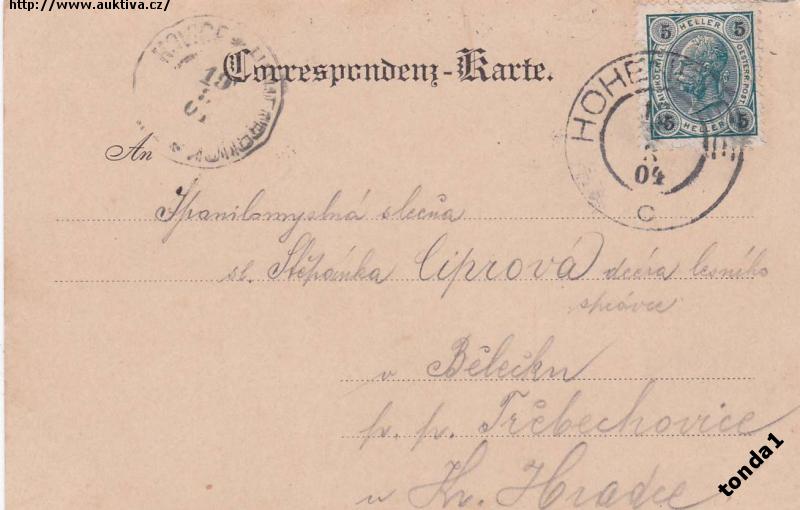 http://www.auktiva.cz/
Correspondenz-Karte.
5 HELLER 5
5 HELLER 5
HOHE
04
C
19
An
Spanilomyslná slečna
sl. Štěpánka Ciprová dcéra lesního
správce
v Bělečku
p. p. Třebechovice
u Kr. Hradce
tonda1